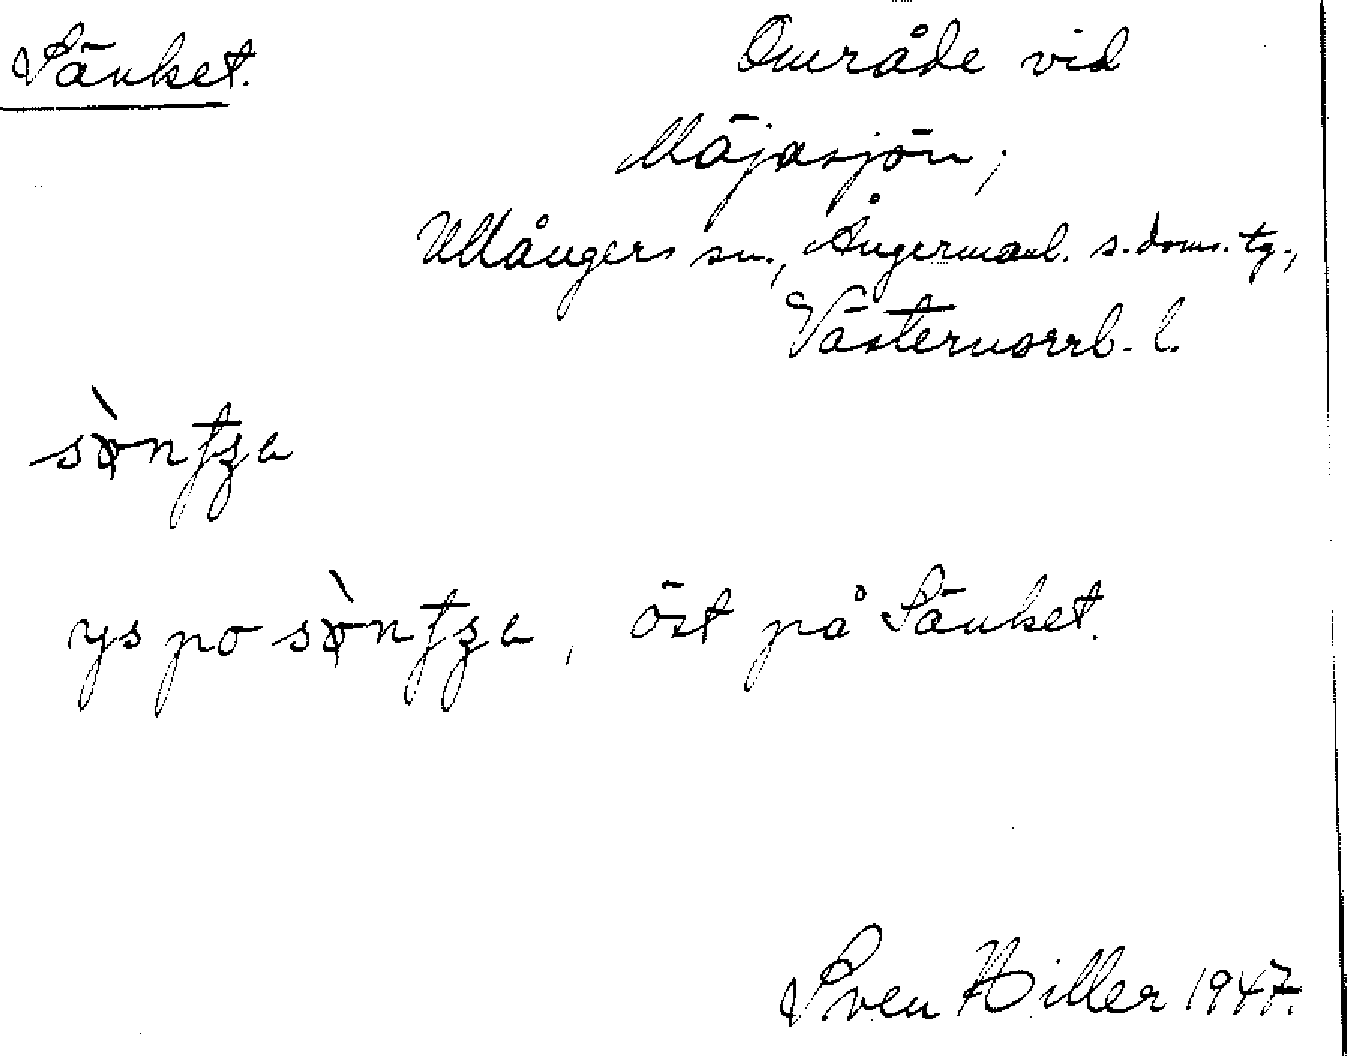 Sänket.
Område vid
Mäjasjön,
Ullångers sn., Ångermanl. s. doms. tg.,
Västernorrl. l.
öst på Sänket.
Sven Hiller 1947.